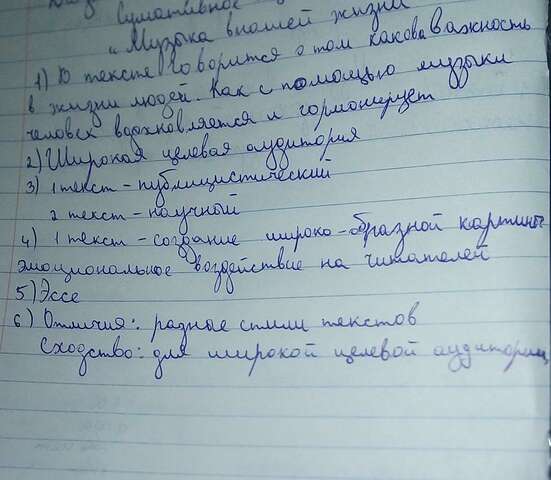 Сумативное
"Музыка в нашей жизни
1) В тексте говорится о том какова важность
в жизни людей. Как с помощью музыки
человек вдохновляется и гормонирует
2) Широкая целевая аудитория
3) 1 текст - публицистический
2 текст - научный
4) 1 текст - создание широко-образной картины
эмоциональное воздействие на читателей
5) Эссе
6) Отличия: разные стили текстов
Сходство: для широкой целевой аудитории